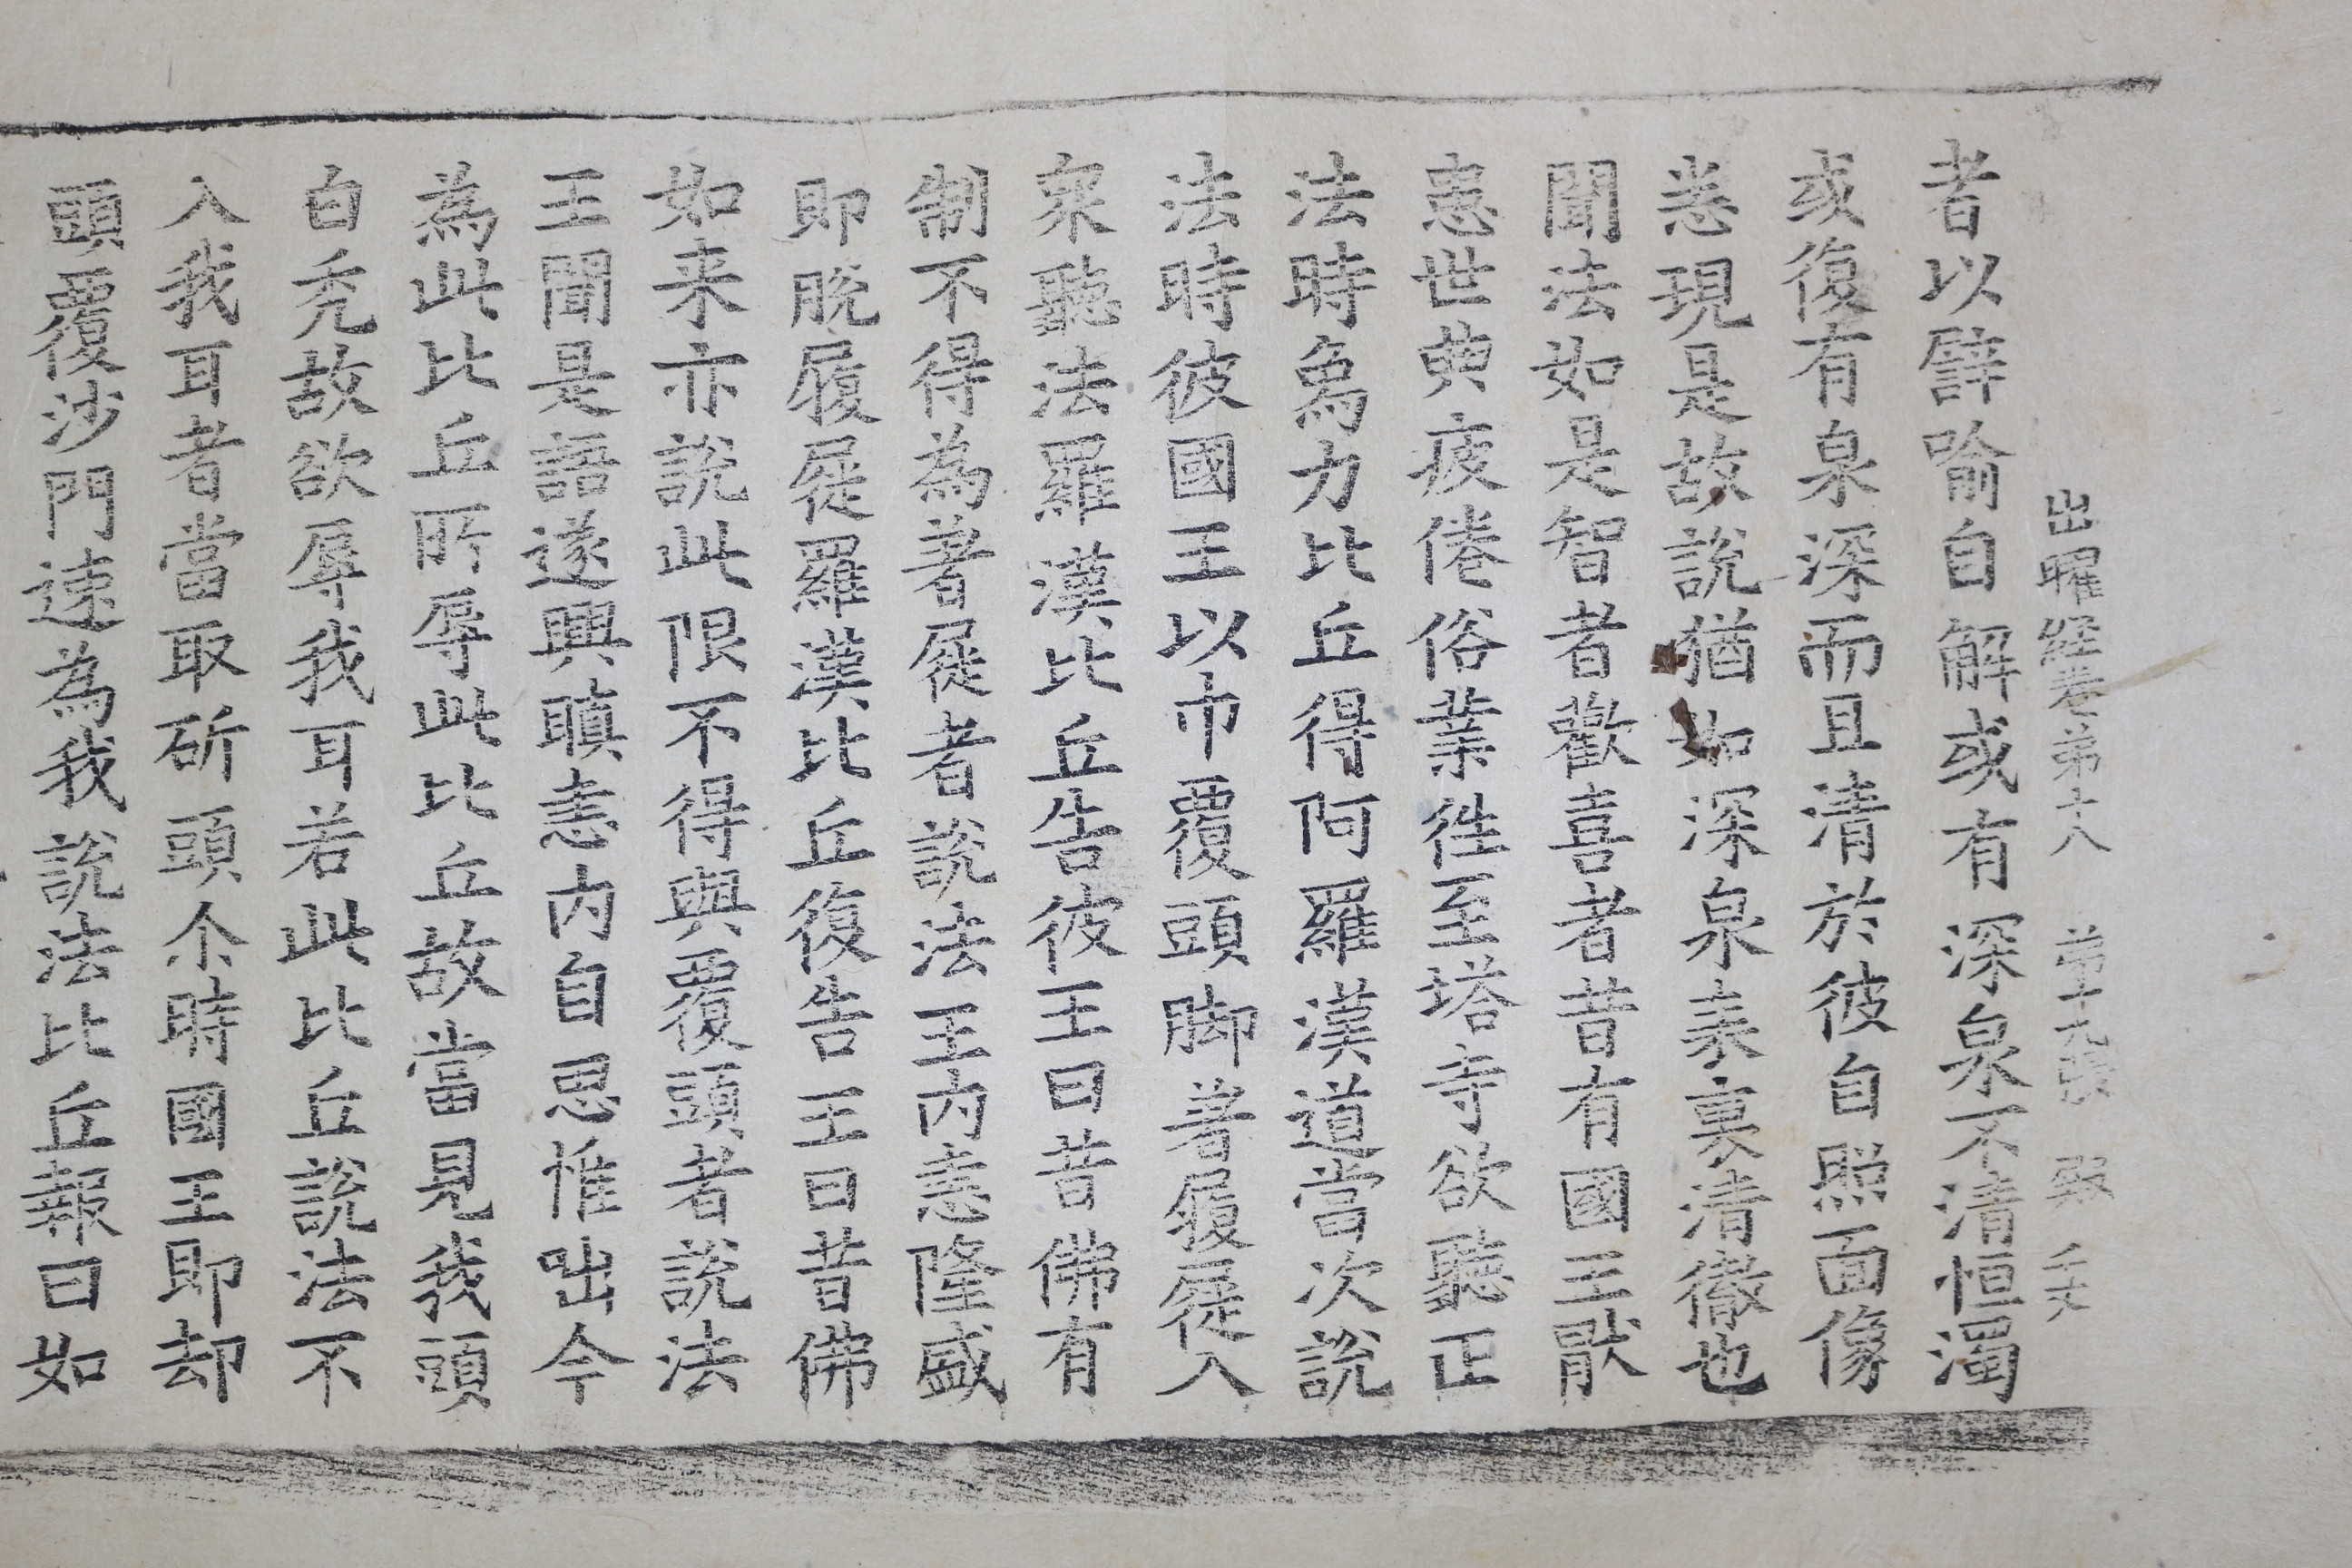 出曜經卷第十八 第十九張 墍 壬丈
者以譬喻自解或有深泉不清恒濁
或復有泉深而且清於彼自照面像
悉現是故說猶如深泉表裏清徹也
聞法如是智者歡喜者昔有國王猒
患世典疲倦俗業徃至塔寺欲聽正
法時象力比丘得阿羅漢道當次說
法時彼國王以巾覆頭脚著履屣入
衆聽法羅漢比丘告彼王曰昔佛有
制不得為著屣者說法王内恚隆盛
即脫履屣羅漢比丘復告王曰昔佛
如来亦說此限不得與覆頭者說法
王聞是語遂興瞋恚内自思惟咄今
為此比丘所辱此比丘故當見我頭
自禿故欲辱我耳若此比丘說法不
入我耳者當取斫頭尒時國王即却
頭覆沙門速為我說法比丘報曰如